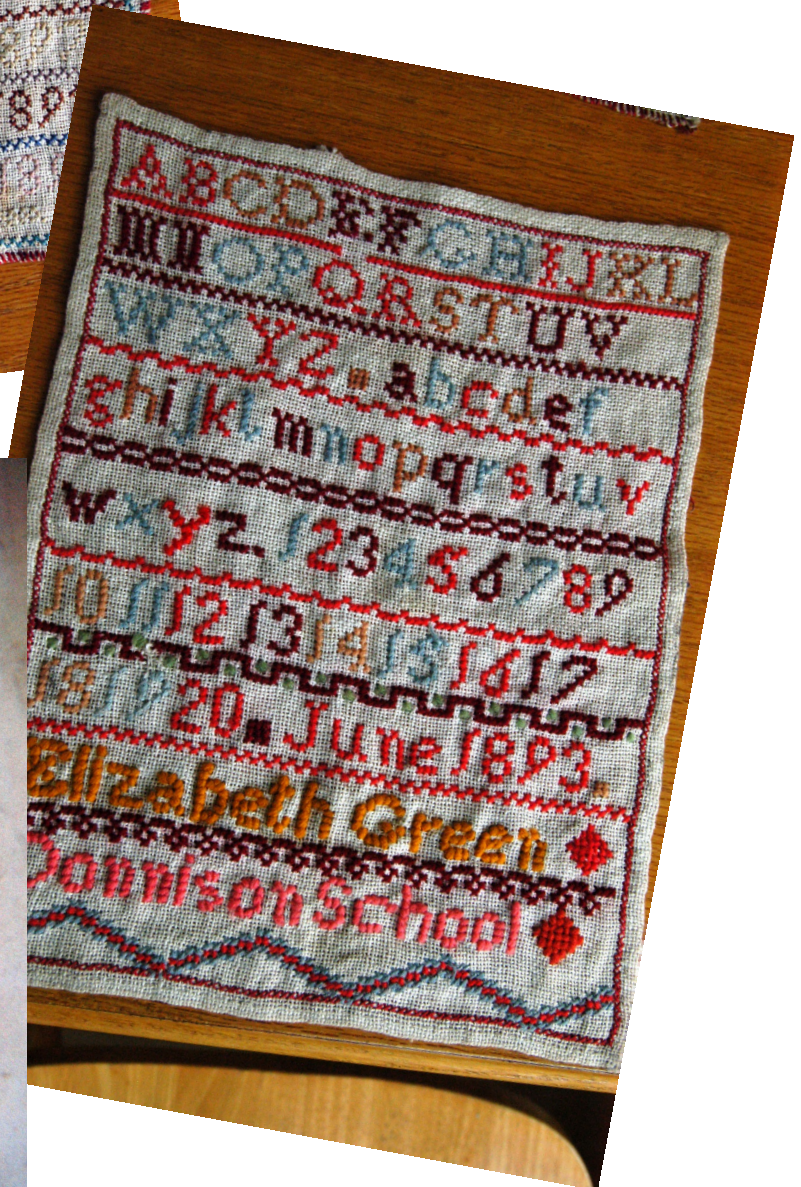 ABCDEFGHIJKL
MNOPQRSTUV
WXYZ. abcdef
ghijklmnopqrstuv
wxyz. 123456789
10 11 12 13 14 15 16 17
18 19 20. June 1893.
Elizabeth Green
Donnison School
789